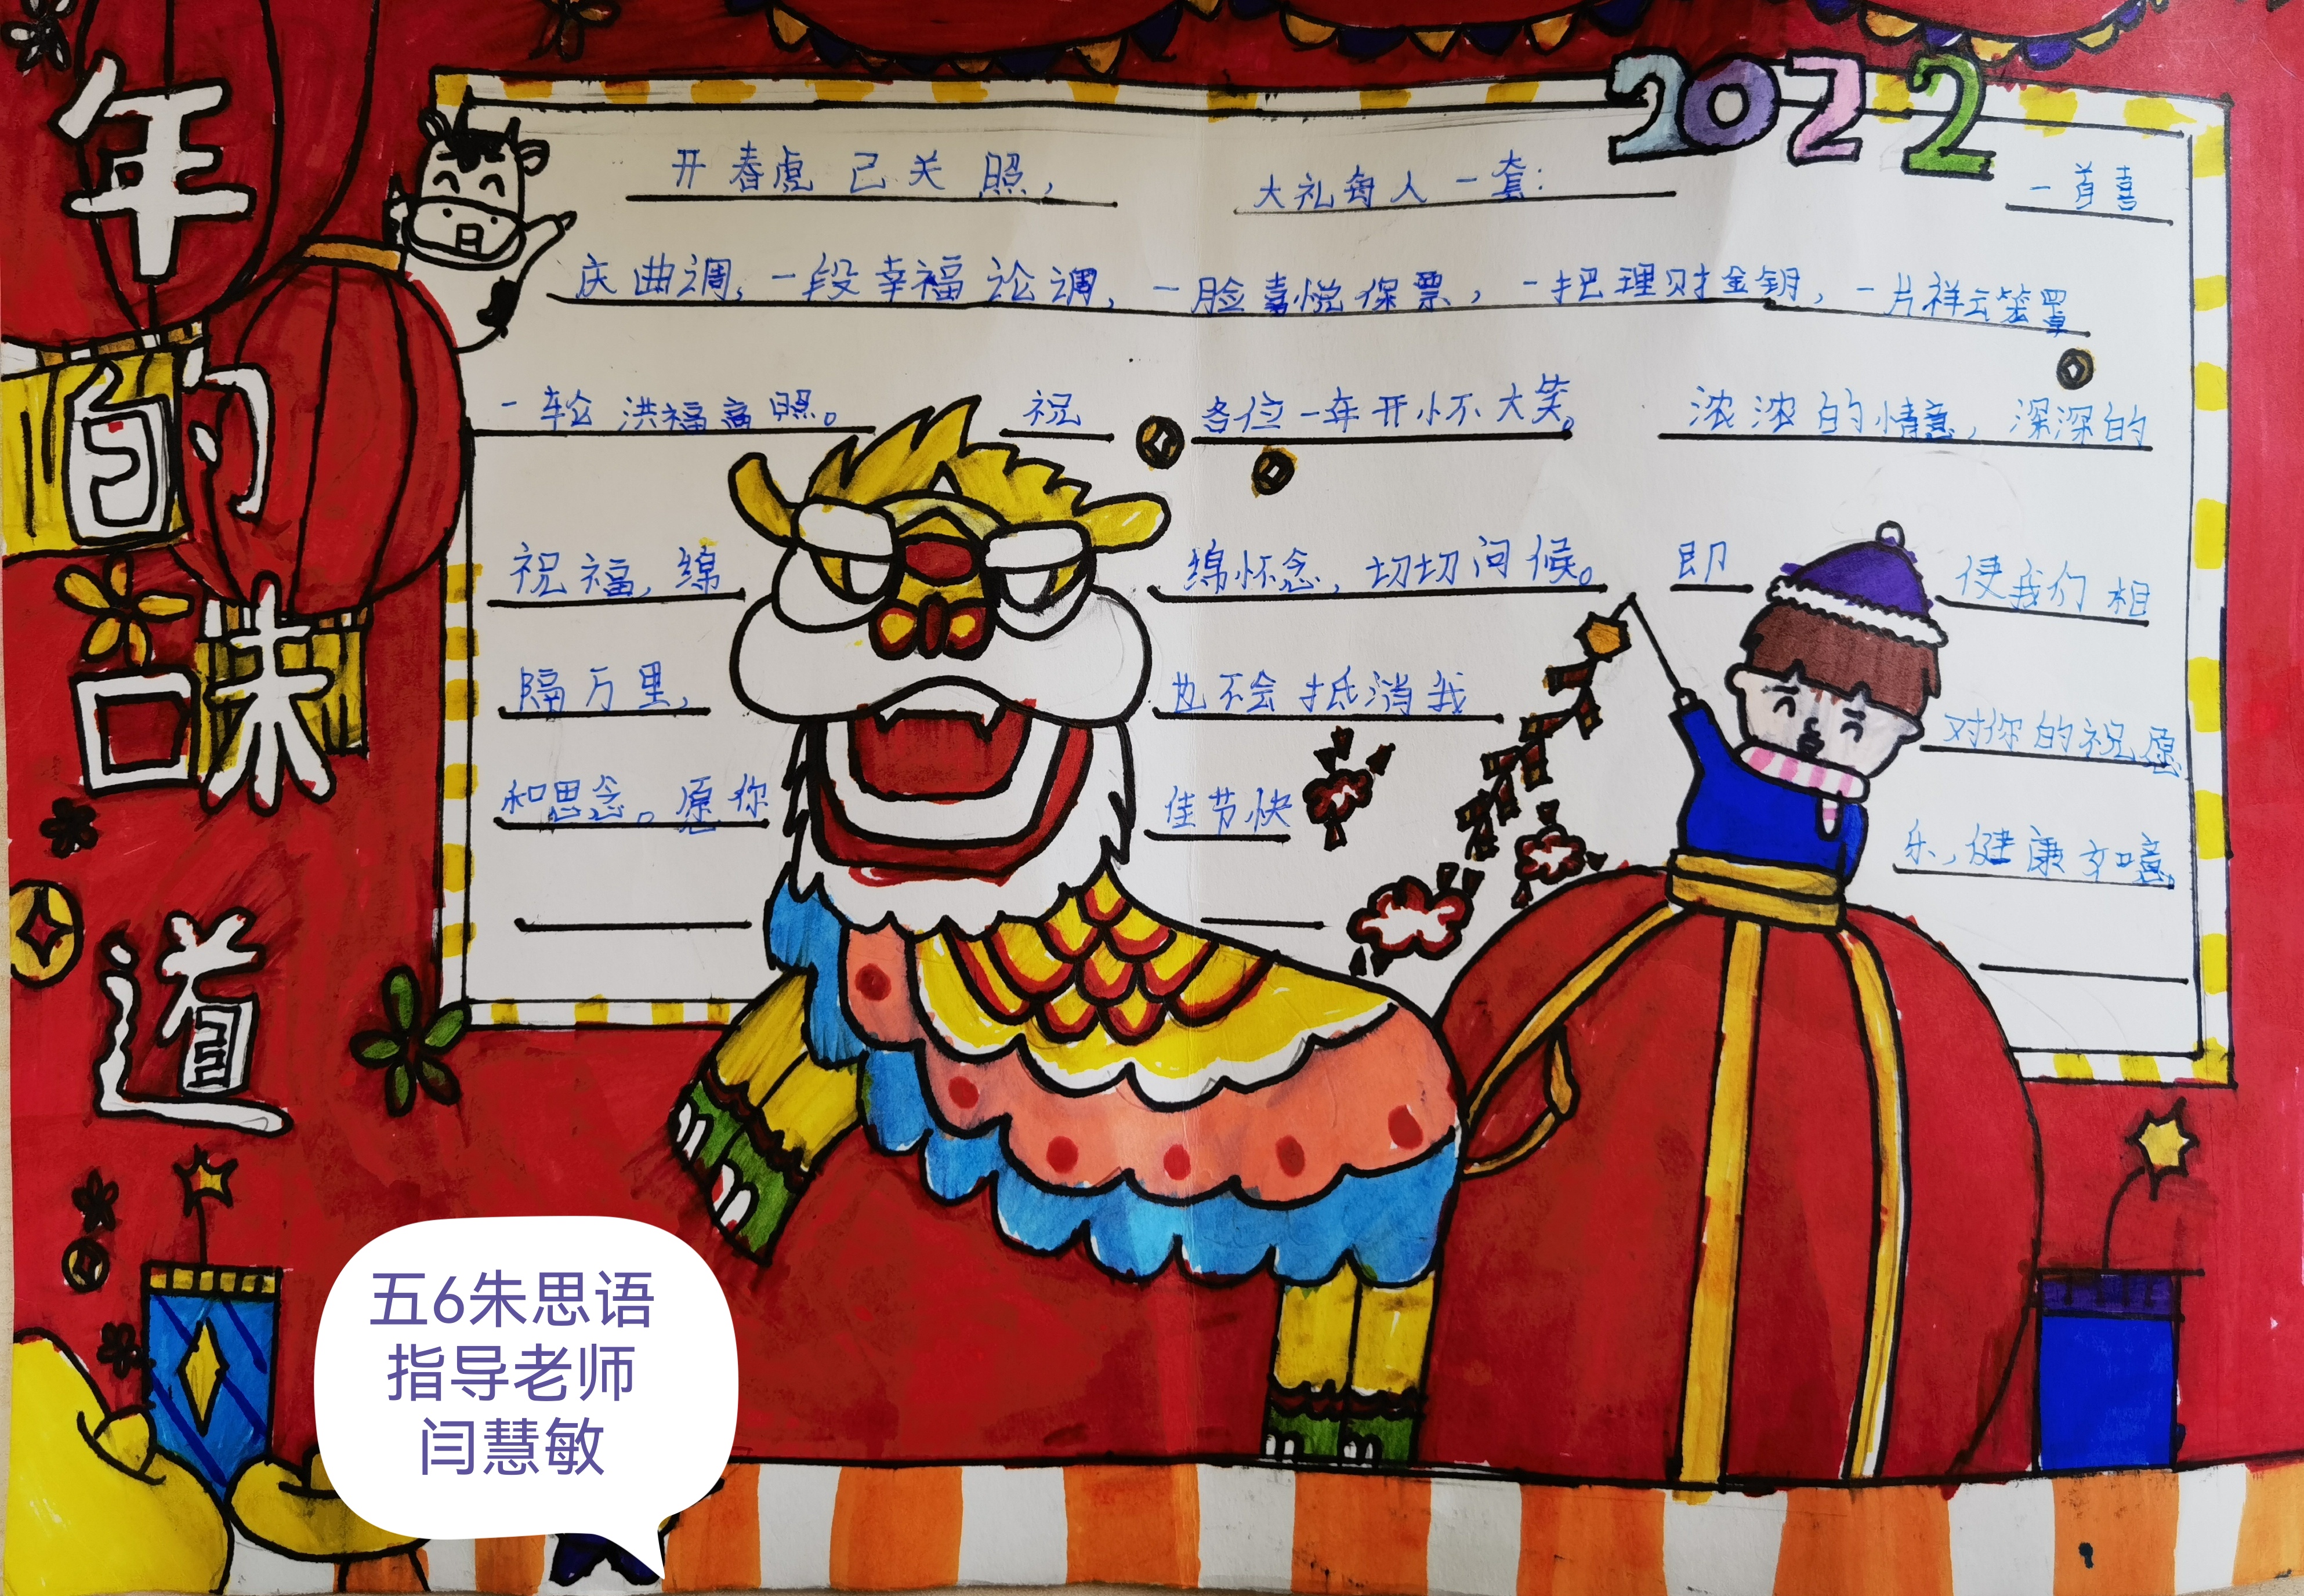 年的味道
2022
开春虎已关照，大礼每人一套：一首喜
庆曲调，一段幸福论调，一脸喜悦保票，一把理财金钥，一片祥云笼罩
一轮洪福高照。祝各位一年开怀大笑。浓浓的情意，深深的
祝福，绵绵怀念，切切问候。即便我们相
隔万里，也不会抵消我对你的祝愿
和思念。愿你佳节快乐，健康如意，
五6朱思语
指导老师
闫慧敏